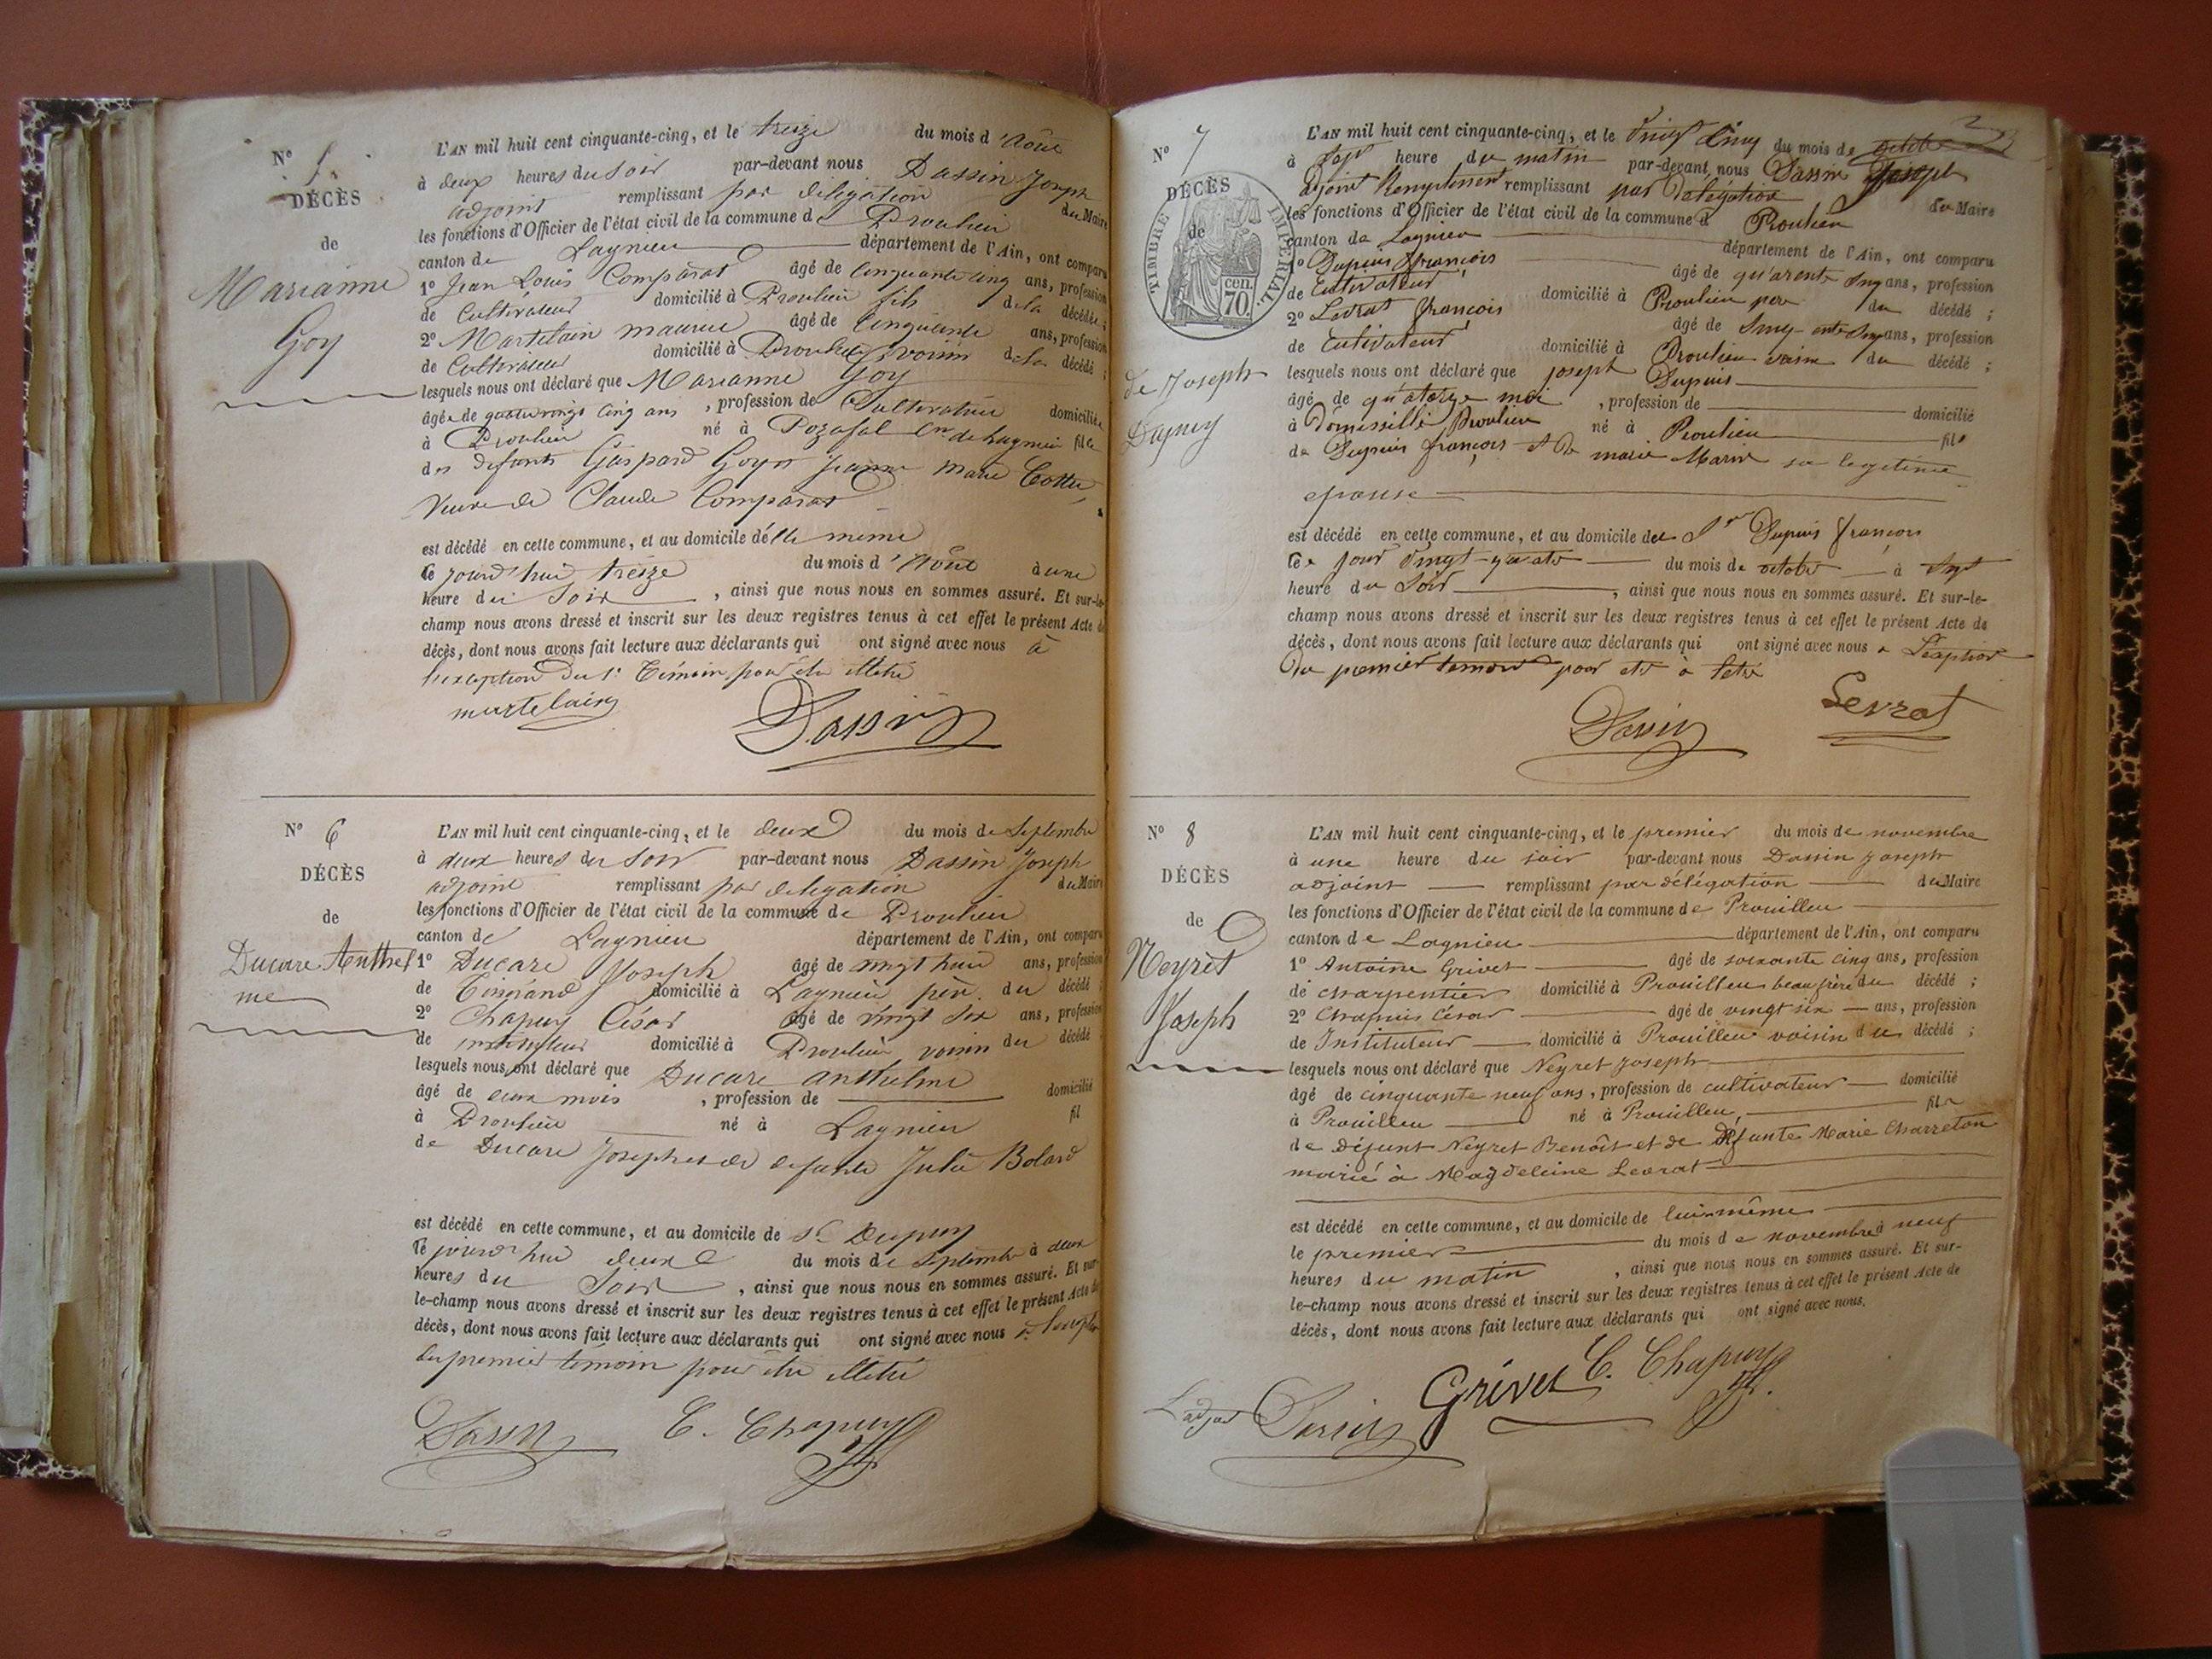 N° 5
DÉCÈS
de
Marianne
Goy
L'AN mil huit cent cinquante-cinq, et le treize du mois d'Août
à deux heures du soir par-devant nous Dassin Joseph
adjoint remplissant par délégation du Maire
les fonctions d'Officier de l'état civil de la commune de Proulieu
canton de Lagnieu département de l'Ain, ont comparu
1° Jean Louis Comparat âgé de cinquante cinq ans, profession
de Cultivateur domicilié à Proulieu fils de la décédée ;
2° Martelain maurice âgé de cinquante ans, profession
de Cultivateur domicilié à Proulieu voisin de la décédé ;
lesquels nous ont déclaré que Marianne Goy
âgée de quatre vingt cinq ans, profession de Cultivatrice domiciliée
à Proulieu né à Pozafol Cne de Lagnieu fille
des défunts Gaspard Goy et Jeanne Marie Cottu
Veuve de Claude Comparat
est décédé en cette commune, et au domicile d'elle même
le jourd'hui treize du mois d'Août à une
heure du soir, ainsi que nous nous en sommes assuré. Et sur-le-
champ nous avons dressé et inscrit sur les deux registres tenus à cet effet le présent Acte de
décès, dont nous avons fait lecture aux déclarants qui ont signé avec nous à
l'exception du 1r Témoin pour être illétré
martelain Dassin
N° 6
DÉCÈS
de
Ducare Anthel
me
L'AN mil huit cent cinquante-cinq, et le deux du mois de Septembre
à deux heures du soir par-devant nous Dassin Joseph
adjoint remplissant par délégation du Maire
les fonctions d'Officier de l'état civil de la commune de Proulieu
canton de Lagnieu département de l'Ain, ont comparu
1° Ducare Joseph âgé de vingt huit ans, profession
de domicilié à Lagnieu père du décédé ;
2° Chapuy César âgé de vingt six ans, profession
de instituteur domicilié à Proulieu voisin du décédé
lesquels nous ont déclaré que Ducare anthelme
âgé de deux mois, profession de domicilié
à Proulieu né à Lagnieu fil
de Ducare Joseph et de défunte Julie Bolard
est décédé en cette commune, et au domicile de Sr Dupuy
le jourd'hui deux du mois de Septembre à deux
heures du Soir, ainsi que nous nous en sommes assuré. Et sur-
le-champ nous avons dressé et inscrit sur les deux registres tenus à cet effet le présent Acte de
décès, dont nous avons fait lecture aux déclarants qui ont signé avec nous
du premier témoin pour être illétré
Dassin C. Chapuy
N° 7
DÉCÈS
de
TIMBRE IMPÉRIAL
cen.
70.
de Joseph
Dupuy
L'AN mil huit cent cinquante-cinq, et le vingt cinq du mois de octobre
à sept heure du matin par-devant nous Dassin Joseph
adjoint remplissant par délégation du Maire
les fonctions d'Officier de l'état civil de la commune d Proulieu
canton de Lagnieu département de l'Ain, ont comparu
1° Dupuis françois âgé de quarente cinq ans, profession
de Cultivateur domicilié à Proulieu père du décédé ;
2° Levrat françois âgé de ans, profession
de Cultivateur domicilié à Proulieu voisin du décédé ;
lesquels nous ont déclaré que joseph Dupuis
âgé de quatorze moi, profession de domicilié
à Domissillé Proulieu né à Proulieu fils
de Dupuis françois et de marie Marin sa legetime
epouse
est décédé en cette commune, et au domicile de Sr Dupuis françois
le jour vingt-quatre du mois de octobre à sept
heure du Soir, ainsi que nous nous en sommes assuré. Et sur-le-
champ nous avons dressé et inscrit sur les deux registres tenus à cet effet le présent Acte de
décès, dont nous avons fait lecture aux déclarants qui ont signé avec nous a
du premier temoin pour
Dassin Levrat
N° 8
DÉCÈS
de
Neyret
Joseph
L'AN mil huit cent cinquante-cinq, et le premier du mois de novembre
à une heure du soir par-devant nous Dassin Joseph
adjoint remplissant par délégation du Maire
les fonctions d'Officier de l'état civil de la commune de Prouilleu
canton de Lagnieu département de l'Ain, ont comparu
1° Antoine Grivet âgé de soixante cinq ans, profession
de charpentier domicilié à Prouilleu beau frère du décédé ;
2° Chapuis César âgé de vingt six ans, profession
de Instituteur domicilié à Prouilleu voisin du décédé ;
lesquels nous ont déclaré que Neyret Joseph
âgé de cinquante neuf ans, profession de cultivateur domicilié
à Prouilleu né à Prouilleu, fils
de défunt Neyret Benoît et de défunte Marie Charreton
marié à Magdeleine Levrat
est décédé en cette commune, et au domicile de lui-même
le premier du mois de novembre à neuf
heures du matin, ainsi que nous nous en sommes assuré. Et sur-
le-champ nous avons dressé et inscrit sur les deux registres tenus à cet effet le présent Acte de
décès, dont nous avons fait lecture aux déclarants qui ont signé avec nous.
L'adjoint Dassin Grivet C. Chapuy